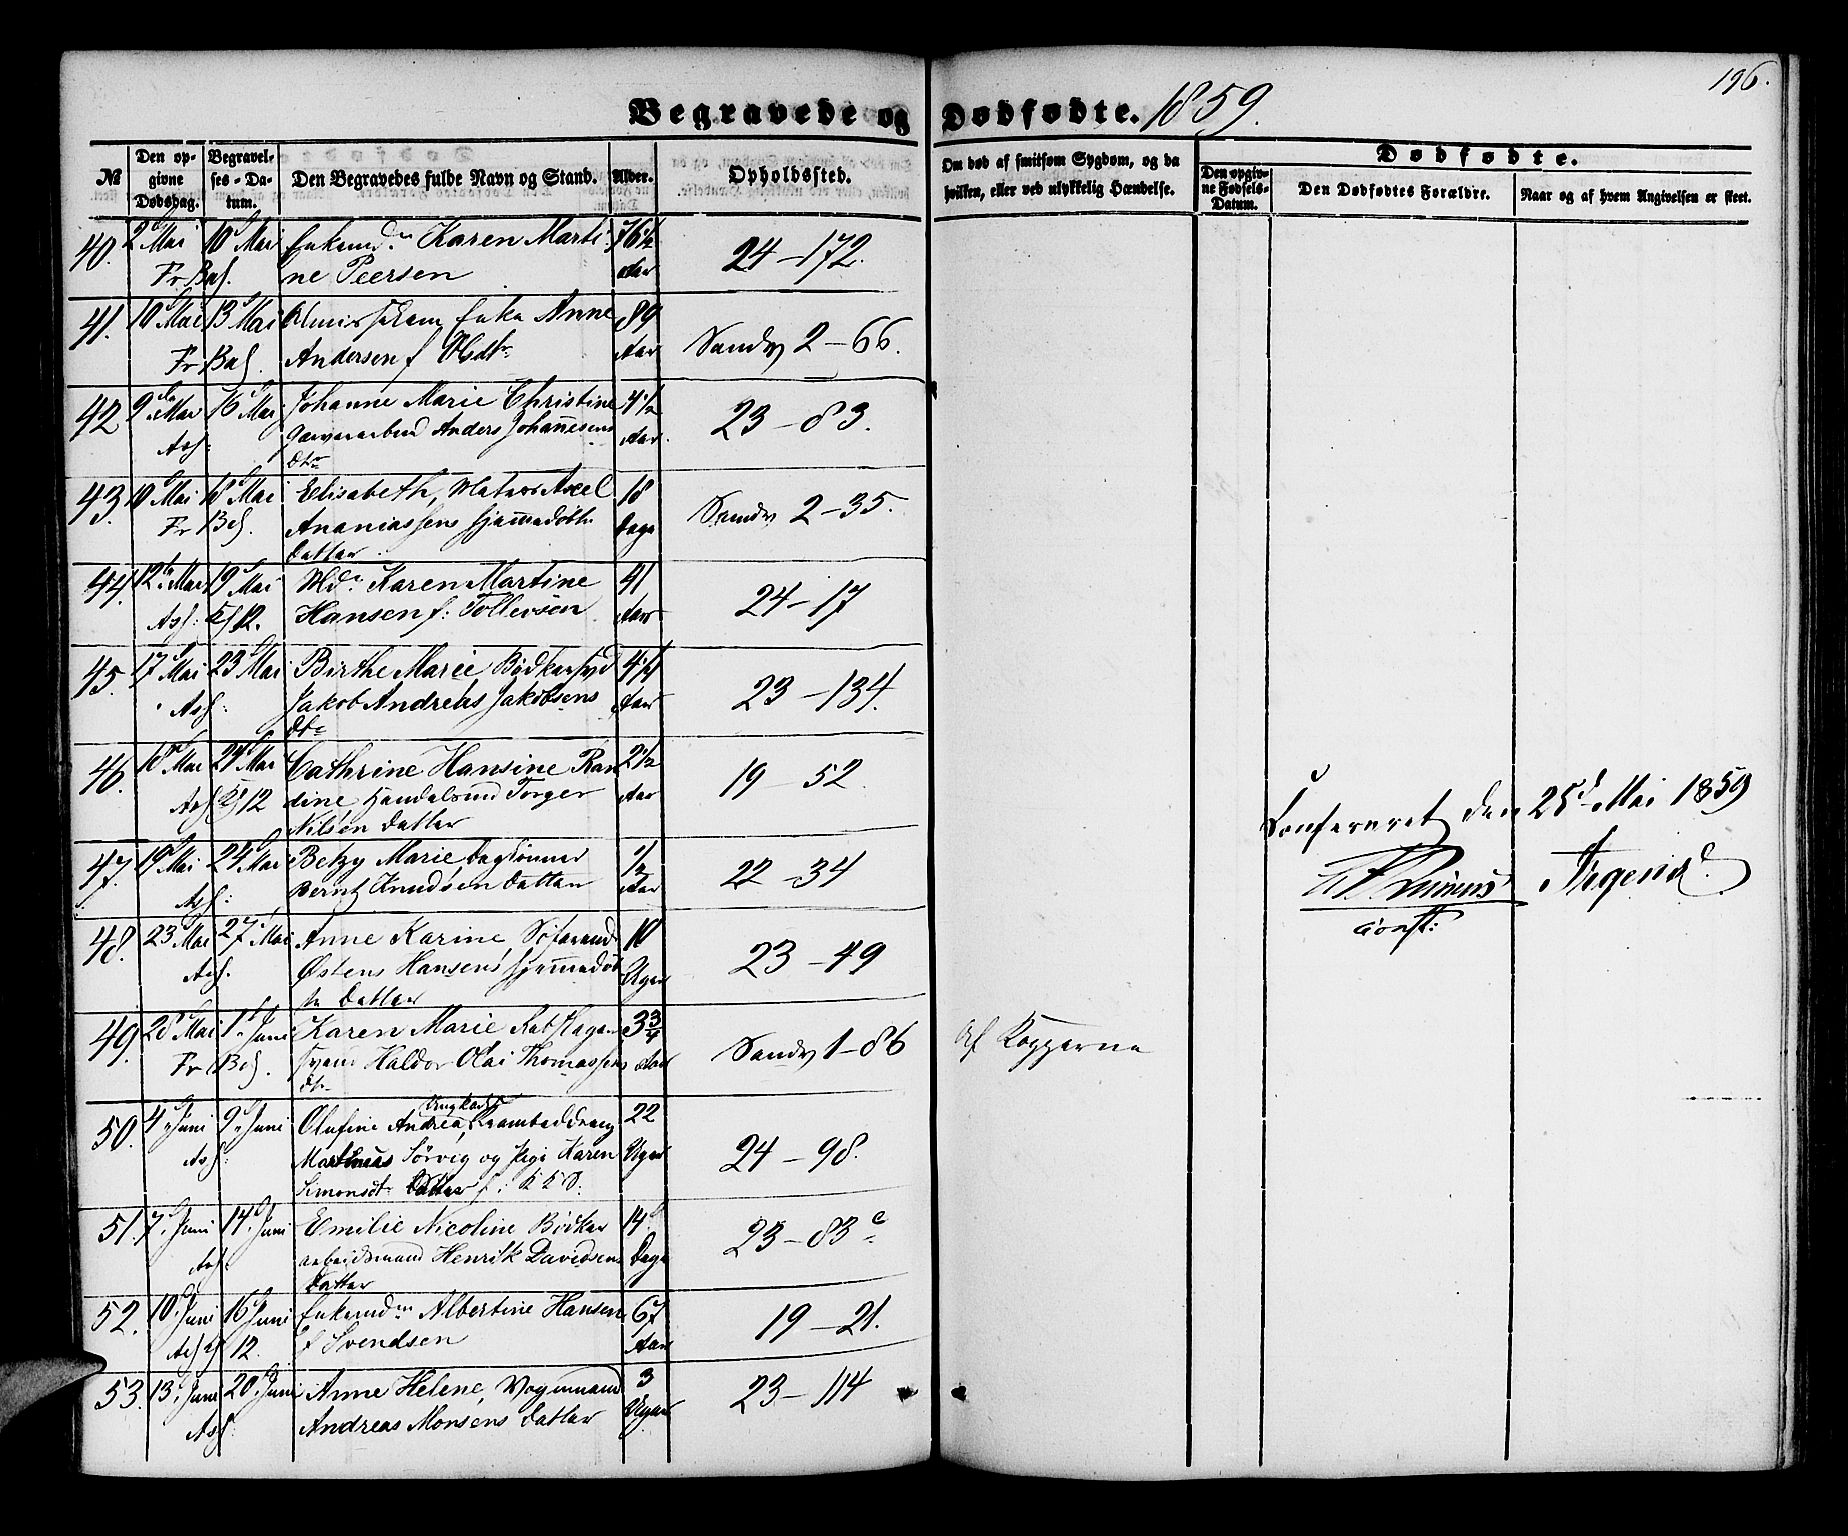 196.
Begravede og Dødfødte. 1859.
№ Den opgivne Dødsdag. Begravelses-Datum. Den Begravedes fulde Navn og Stand. Alder. Opholdssted. Om død af smitsom Sygdom, og da hvilken, eller ved ulykkelig Hændelse. Dødfødte.
Den opgivne Fødsels-Datum. Den Dødfødtes Forældre. Naar og af hvem Angivelsen er skeet.
40. 2 Mai 10 Mai Enkemdm Karen Marti- 76½ 24-172.
Fr Bes. ne Peersen Aar
41. 10 Mai 13 Mai Enke Anne 89 Sandv 2-66.
Fr Bes. Andersen f Olsdtr Aar
42 9 Mai 16 Mai Johanne Marie Christine 4½ 23-83.
Asf: Garverarbeid Anders Johannesens Aar
Dtr
43. 10 Mai 18 Mai Elisabeth, Matros Axel 18 Sandv 2-35.
Fr Bes. Ananiassens hjemmedøbte Dage
Datter
44. 12 Mai 19 Mai Md. Karen Martine 41 24-17
Asf: Kl 12. Hansen f: Tollevsen Aar
45. 17 Mai 23 Mai Birthe Marie, Bødkersvd 4¼ 23-134.
Asf: Jakob Andreas Jakobsens Aar
Dtr
46. 18 Mai 24 Mai Cathrine Hansine Ran 2½ 19-52.
Asf Kl 12 dine Handelsmd Torger Aar
Nilsen Datter
Confereret den 25d Mai 1859
47. 19 Mai 24 Mai Betzy Marie Daglønner ½ 22-34
Asf: Bernt Knudsen Datter Aar
const:
48. 23 Mai 27 Mai Anne Karine, Søfarend 10 23-49
Asf. Østens Hansens hjemmedøb Uger
te Datter
49. 28 Mai 1. Juni Karen Marie 3¾ Sandv 1-86 af Kopperne
Fr Bes. svend Haldor Olai Thomassens Aar
Dtr
50. 4. Juni 9. Juni Olufine Andrea, Ungkarl 22 24-98.
Asf: Martinius Sørvig og Pige Karen Uger
Simonsdt Datter
51. 7. Juni 14. Juni Emilie Nicoline Bødker 14 23-83c
Asf arbeidsmand Henrik Davidsens Dage
Datter
52. 10. Juni 16 Juni Enkemdm Albertine Hansen 67 19-21.
Asf Kl 12. f Svendsen Aar
53. 13. Juni 20. Juni Anne Helene, Vognmand 3 23-114
Asf: Andreas Monsens Datter Uger